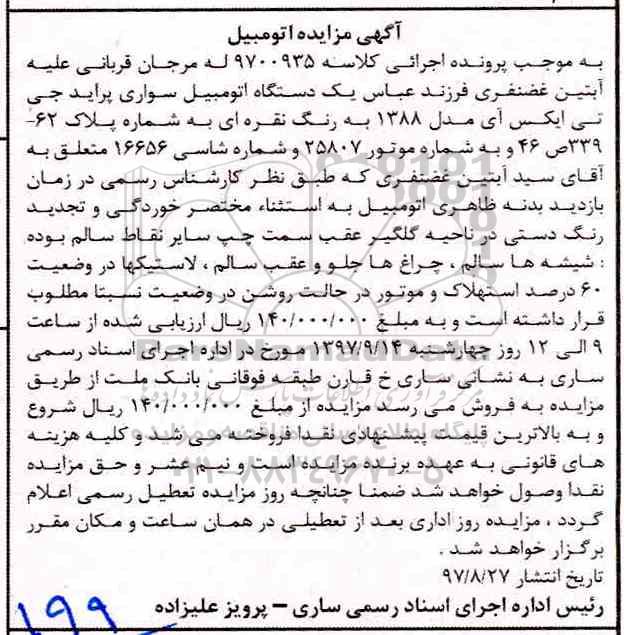 آگهی مزایده اتومبیل
به موجب پرونده اجرائی کلاسه ۹۷۰۰۹۳۵ له مرجان قربانی علیه
آبتین غضنفری فرزند عباس یک دستگاه اتومبیل سواری پراید جی
تی ایکس آی مدل ۱۳۸۸ به رنگ نقره ای به شماره پلاک ۶۲-
۳۳۹ص ۴۶ و به شماره موتور ۲۵۸۰۷ و شماره شاسی ۱۶۶۵۶ متعلق به
آقای سید آبتین غضنفری که طبق نظر کارشناس رسمی در زمان
بازدید بدنه ظاهری اتومبیل به استثناء مختصر خوردگی و تجدید
رنگ دستی در ناحیه گلگیر عقب سمت چپ سایر نقاط سالم بوده
: شیشه ها سالم ، چراغ ها جلو و عقب سالم ، لاستیکها در وضعیت
۶۰ درصد استهلاک و موتور در حالت روشن در وضعیت نسبتا مطلوب
قرار داشته است و به مبلغ ۱۴۰/۰۰۰/۰۰۰ ریال ارزیابی شده از ساعت
۹ الی ۱۲ روز چهارشنبه ۱۳۹۷/۹/۱۴ مورخ در اداره اجرای اسناد رسمی
ساری به نشانی ساری خ قارن طبقه فوقانی بانک ملت از طریق
مزایده به فروش می رسد مزایده از مبلغ ۱۴۰/۰۰۰/۰۰۰ ریال شروع
و به بالاترین قیمت پیشنهادی نقدا فروخته می شد و کلیه هزینه
های قانونی به عهده برنده مزایده است و نیم عشر و حق مزایده
نقدا وصول خواهد شد ضمنا چنانچه روز مزایده تعطیل رسمی اعلام
گردد ، مزایده روز اداری بعد از تعطیلی در همان ساعت و مکان مقرر
برگزار خواهد شد .
تاریخ انتشار ۹۷/۸/۲۷
رئیس اداره اجرای اسناد رسمی ساری – پرویز علیزاده
۱۹۹